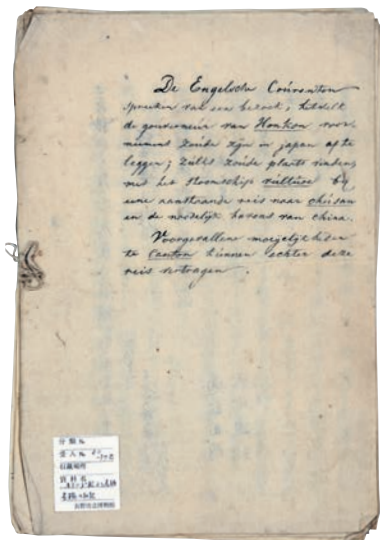 De Engelsche Couranten
spreeken van een bezoek, hetwelk
de gouverneur van Honkon voor-
nemens zoude zijn in japan af te
leggen; zulks zoude plaats vinden,
met het stoomschip vulture by
eene aanstaande reis naar chusan
en de noordelijk havens van china.
Voorgevallene moeijelijkheden
te Canton kunnen echter deze
reis vertragen.
分類 №
受入 №
資料名